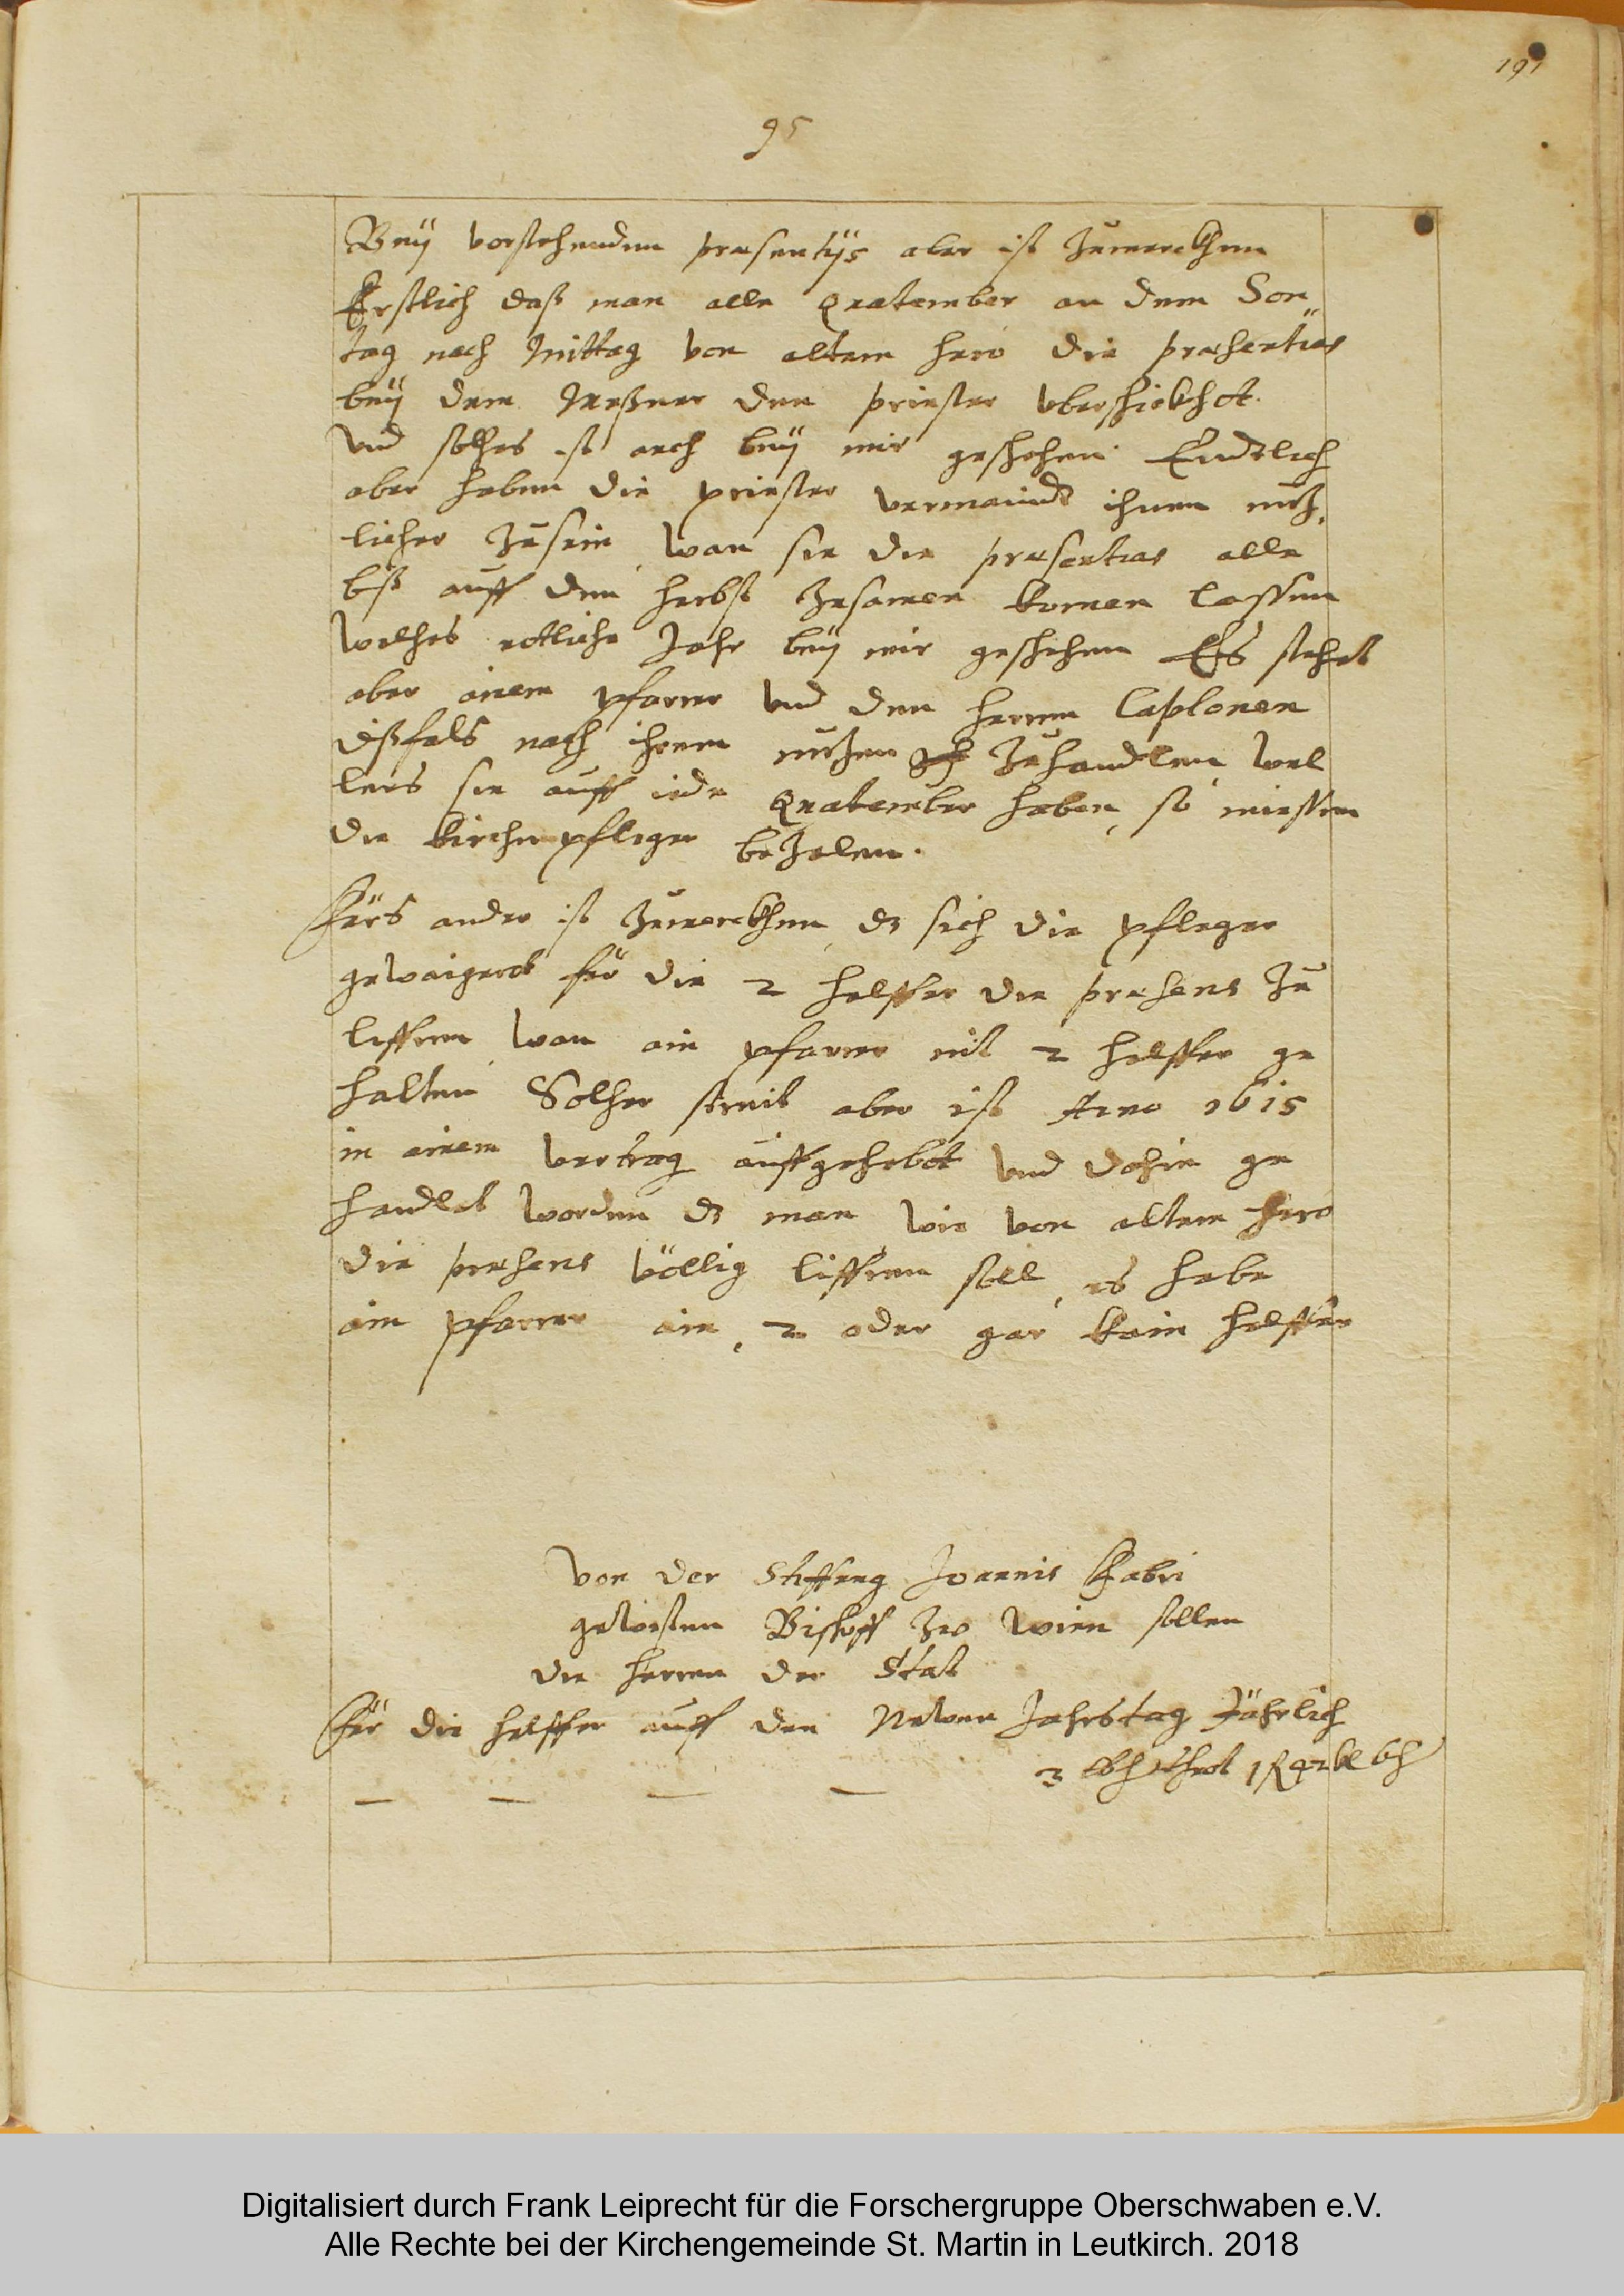 191
95
Beÿ vorstehenden præsentÿs aber ist zumerckhen
Erstlich daß man alle Quatember an dem Son
tag nach Mittag von altem hero die præsentias
beÿ dem Meßner den priester überschickhet.
Vnd solches ist auch beÿ mir geschehen. Endtlich
aber haben die priester vermaindt ihnen nutz,
licher zusein, wan sie die præsentias alle
biß auff den herbst zusamen komen lassen
welches etliche Jahr beÿ mir geschehen Es stehet
aber ainem pfarrer vnd den herren Caplonen
dißfals nach ihrem nutzen zuhandlen, wel
lens sie auff iede Quatember haben, so miessen
die kirchenpfleger bezalen.
Fürs ander ist zumerckhen, dz sich die pfleger
gewaigeret für die 2 helffer die præsens zu
liffren, wan ain pfarrer nit 2 helffer ge
halten Solcher streit aber ist Anno 1615
in ainem vertrag auffgehebt vnd dahin ge
handlet worden dz man, wie von altem hero
die præsens völlig liffren soll, es habe
ain pfarrer ain, 2 oder gar kain helffer
Von der Stifftung Joannis Fabri
gewesten Bischoff zuo Wien sollen
die herren der Stat
Für die helffer auff den Newen Jahrstag Jährlich
Digitalisiert durch Frank Leiprecht für die Forschergruppe Oberschwaben e.V.
Alle Rechte bei der Kirchengemeinde St. Martin in Leutkirch. 2018